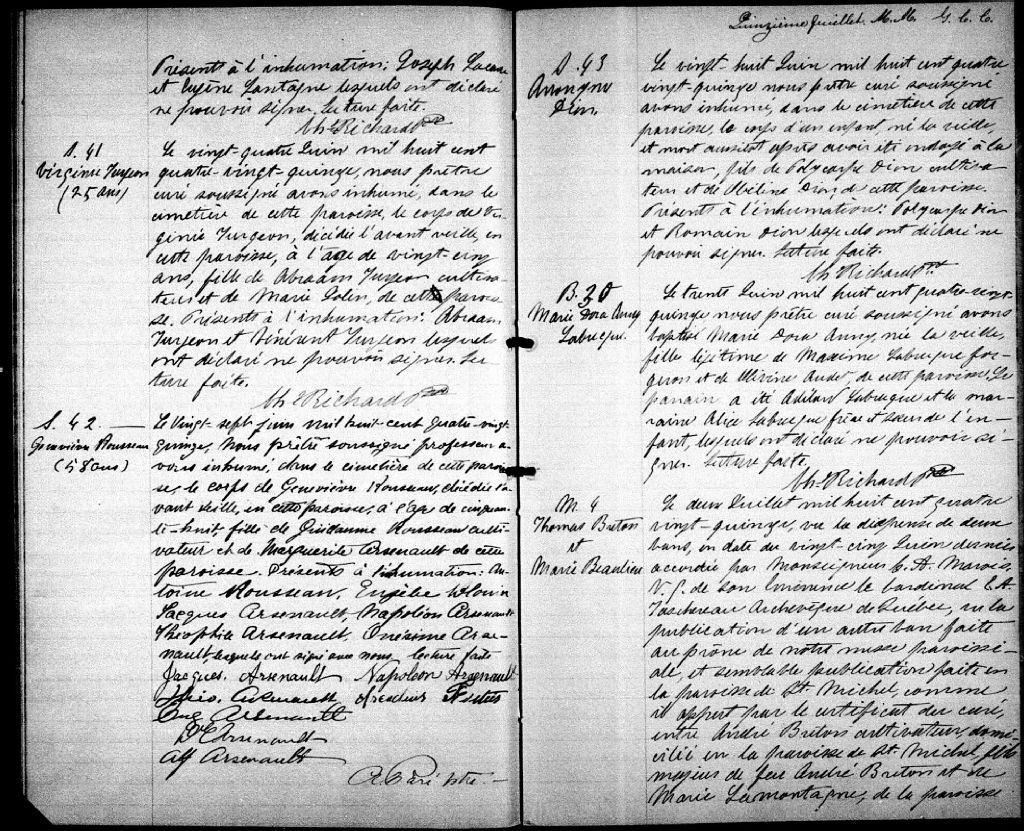 Présents à l'inhumation: Joseph
et Eugène Lantagne lesquels ont déclaré
ne pouvoir signer. Lecture faite.
Chs Richard Ptre
S. 41
Virginie Turgeon
(25 ans)
Le vingt-quatre Juin mil huit cent
quatre-vingt-quinze, nous prêtre
curé soussigné avons inhumé, dans le
cimetière de cette paroisse, le corps de Vir-
ginie Turgeon, décédée l'avant veille, en
cette paroisse, à l'âge de vingt-cinq
ans, fille de Abraam Turgeon cultiva-
teur et de Marie Golin, de cette parois-
se. Présents à l'inhumation: Abraam
Turgeon et Vénérant Turgeon lesquels
ont déclaré ne pouvoir signer. Lec-
ture faite.
Chs Richard Ptre
S. 42.
Geneviève Rousseau
(58 ans)
Le Vingt-sept Juin mil huit-cent quatre-vingt
quinze, nous prêtre soussigné professeur a-
vons inhumé, dans le cimetière de cette parois-
se, le corps de Geneviève Rousseau, décédée l'a-
vant veille, en cette paroisse, à l'âge de cinquan-
te-huit, fille de Guillaume Rousseau culti-
vateur et de Marguerite Arsenault de cette
paroisse. Présents à l'inhumation: An-
toine Rousseau, Eusèbe
Jacques Arsenault, Napoléon Arsenault
Théophile Arsenault, Onésime Arse-
nault, lesquels ont signé avec nous, lecture faite
Jacques Arsenault Napoléon Arsenault
Théo. Arsenault
Eug Arsenault
Arsenault
Alf Arsenault
A. Paré Ptre
Quinzième feuillet. M. M. G. C. C.
S. 43
Anonyme
Dion.
Le vingt-huit Juin mil huit cent quatre
vingt-quinze nous prêtre curé soussigné
avons inhumé, dans le cimetière de cette
paroisse, le corps d'un enfant, né la veille,
et mort aussitôt après avoir été ondoyé à la
maison, fils de Polycarpe Dion cultiva-
teur et de Dion de cette paroisse.
Présents à l'inhumation: Polycarpe Dion
et Romain Dion lesquels ont déclaré ne
pouvoir signer. Lecture faite.
Chs Richard Ptre
B. 30
Marie Dora Anny
Labrecque.
Le trente Juin mil huit cent quatre-vingt
quinze nous prêtre curé soussigné avons
baptisé Marie Dora Anny, née la veille,
fille légitime de Maxime Labrecque for-
geron et de Olivine Audet, de cette paroisse. Le
parrain a été Adélard Labrecque et la mar-
raine Alice Labrecque frère et soeur de l'en-
fant, lesquels ont déclaré ne pouvoir si-
gner. Lecture faite.
Chs Richard Ptre
M. 4
Thomas Breton
et
Marie Beaulieu
Le deux Juillet mil huit cent quatre
vingt-quinze, vu la dispense de deux
bans, en date du vingt-cinq Juin dernier
accordée par Monseigneur C. A. Marois,
V. G. de Son Eminence le Cardinal E. A.
Taschereau Archevêque de Québec, vu la
publication d'un autre ban faite
au prône de notre messe paroissi-
ale, et semblable publication faite en
la paroisse de St. Michel, comme
il appert par le certificat du curé,
entre André Breton cultivateur, domi-
cilié en la paroisse de St. Michel, fils
majeur de feu André Breton et de
Marie Lamontagne, de la paroisse